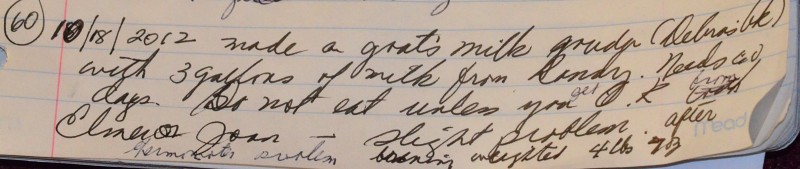 (60) 10/18/2012 made a goat's milk gouda (Debras bk)
with 3 gallons of milk from Randy. Needs 60
days. Do not eat unless you get O.K. from
Elmer or Joan - slight problem after
brining weighted 4 lbs